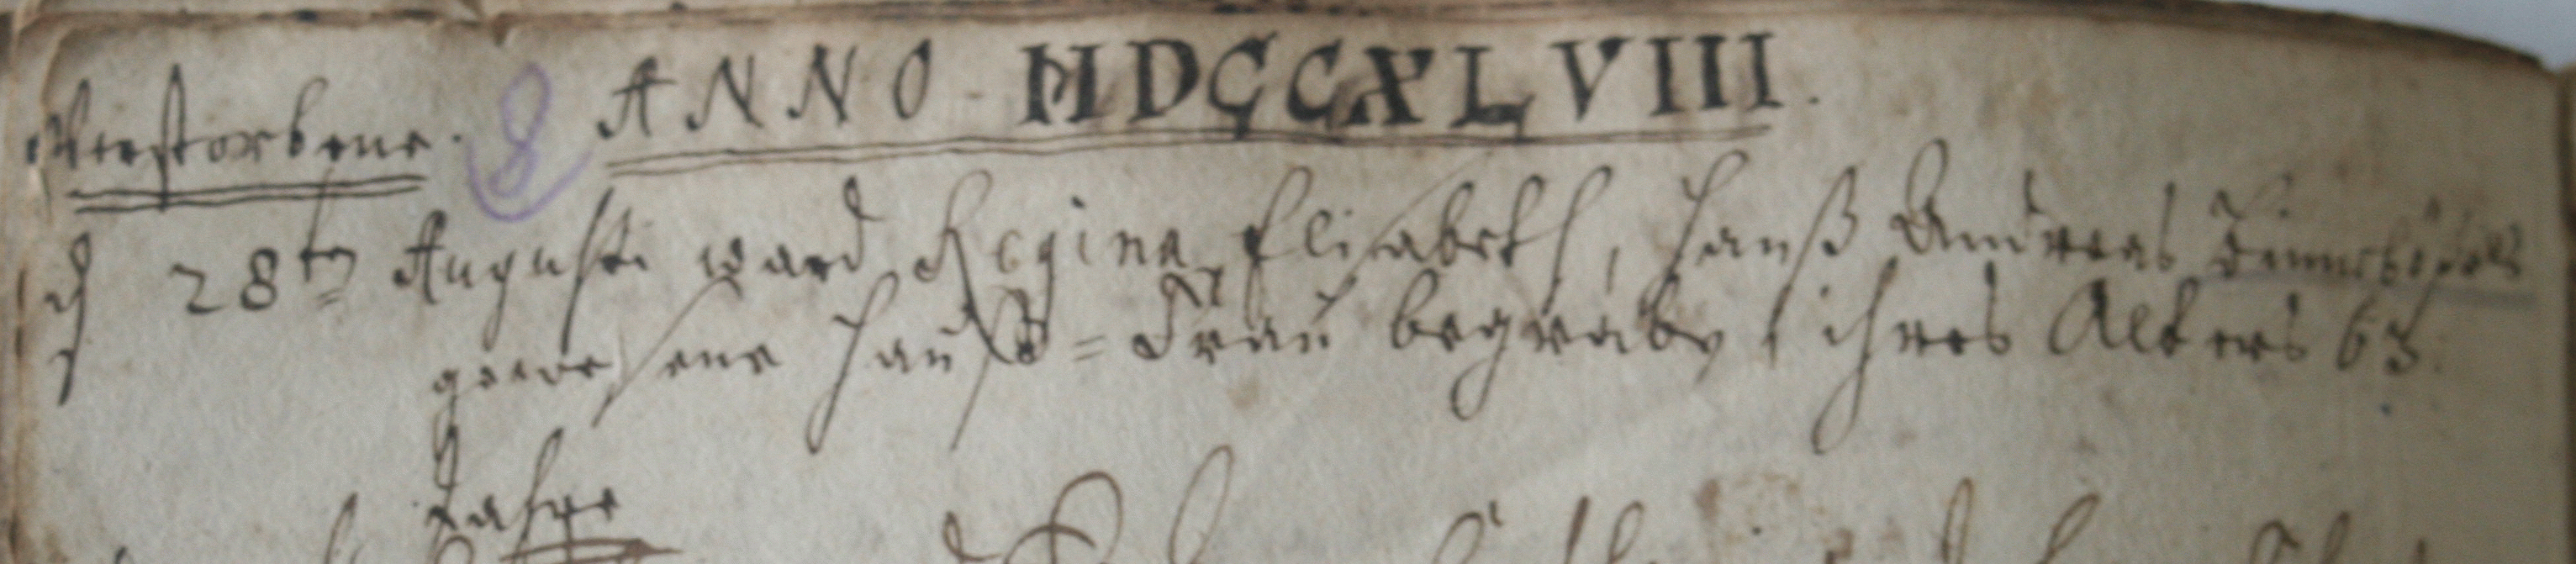 Verstorbene. 8 ANNO MDCCXLVIII.
d 28ten Augusti ward Regina Elisabeth, Hanß Andreas
gewesene Hauß=Frau begraben, ihres Alters 63.
Jahre